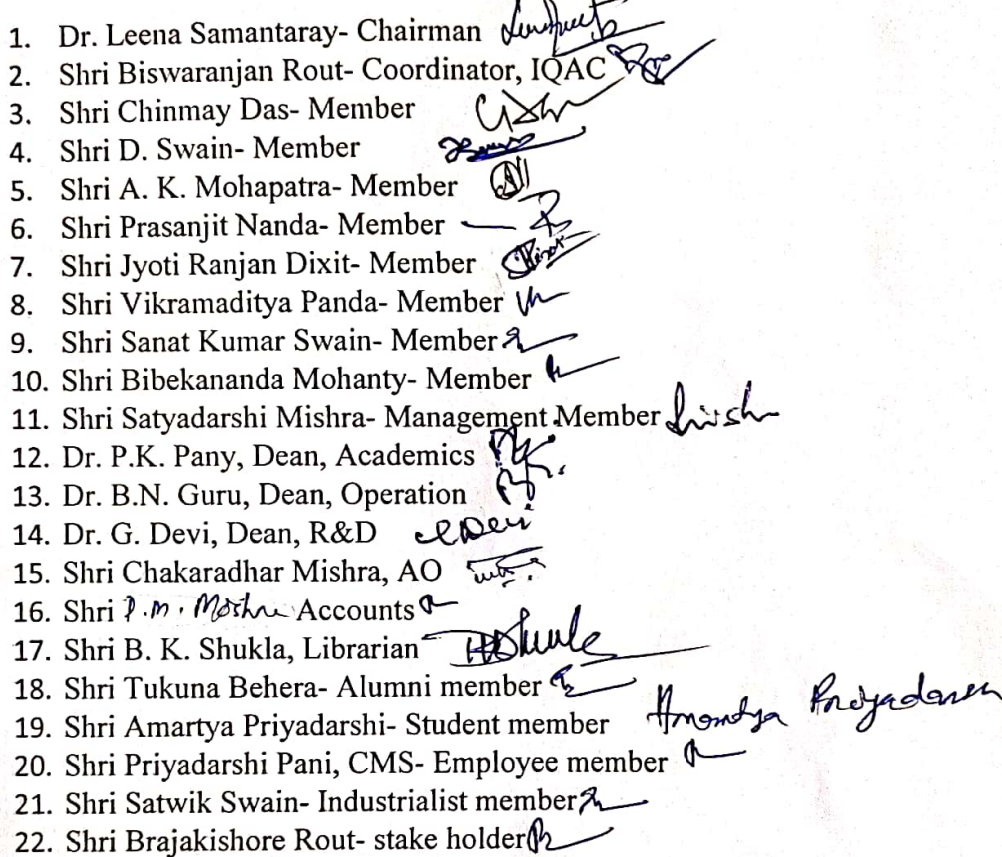 1. Dr. Leena Samantaray- Chairman
2. Shri Biswaranjan Rout- Coordinator, IQAC
3. Shri Chinmay Das- Member
4. Shri D. Swain- Member
5. Shri A. K. Mohapatra- Member
6. Shri Prasanjit Nanda- Member
7. Shri Jyoti Ranjan Dixit- Member
8. Shri Vikramaditya Panda- Member
9. Shri Sanat Kumar Swain- Member
10. Shri Bibekananda Mohanty- Member
11. Shri Satyadarshi Mishra- Management Member
12. Dr. P.K. Pany, Dean, Academics
13. Dr. B.N. Guru, Dean, Operation
14. Dr. G. Devi, Dean, R&D
15. Shri Chakaradhar Mishra, AO
16. Shri P.M. Accounts
17. Shri B. K. Shukla, Librarian
18. Shri Tukuna Behera- Alumni member
19. Shri Amartya Priyadarshi- Student member
20. Shri Priyadarshi Pani, CMS- Employee member
21. Shri Satwik Swain- Industrialist member
22. Shri Brajakishore Rout- stake holder